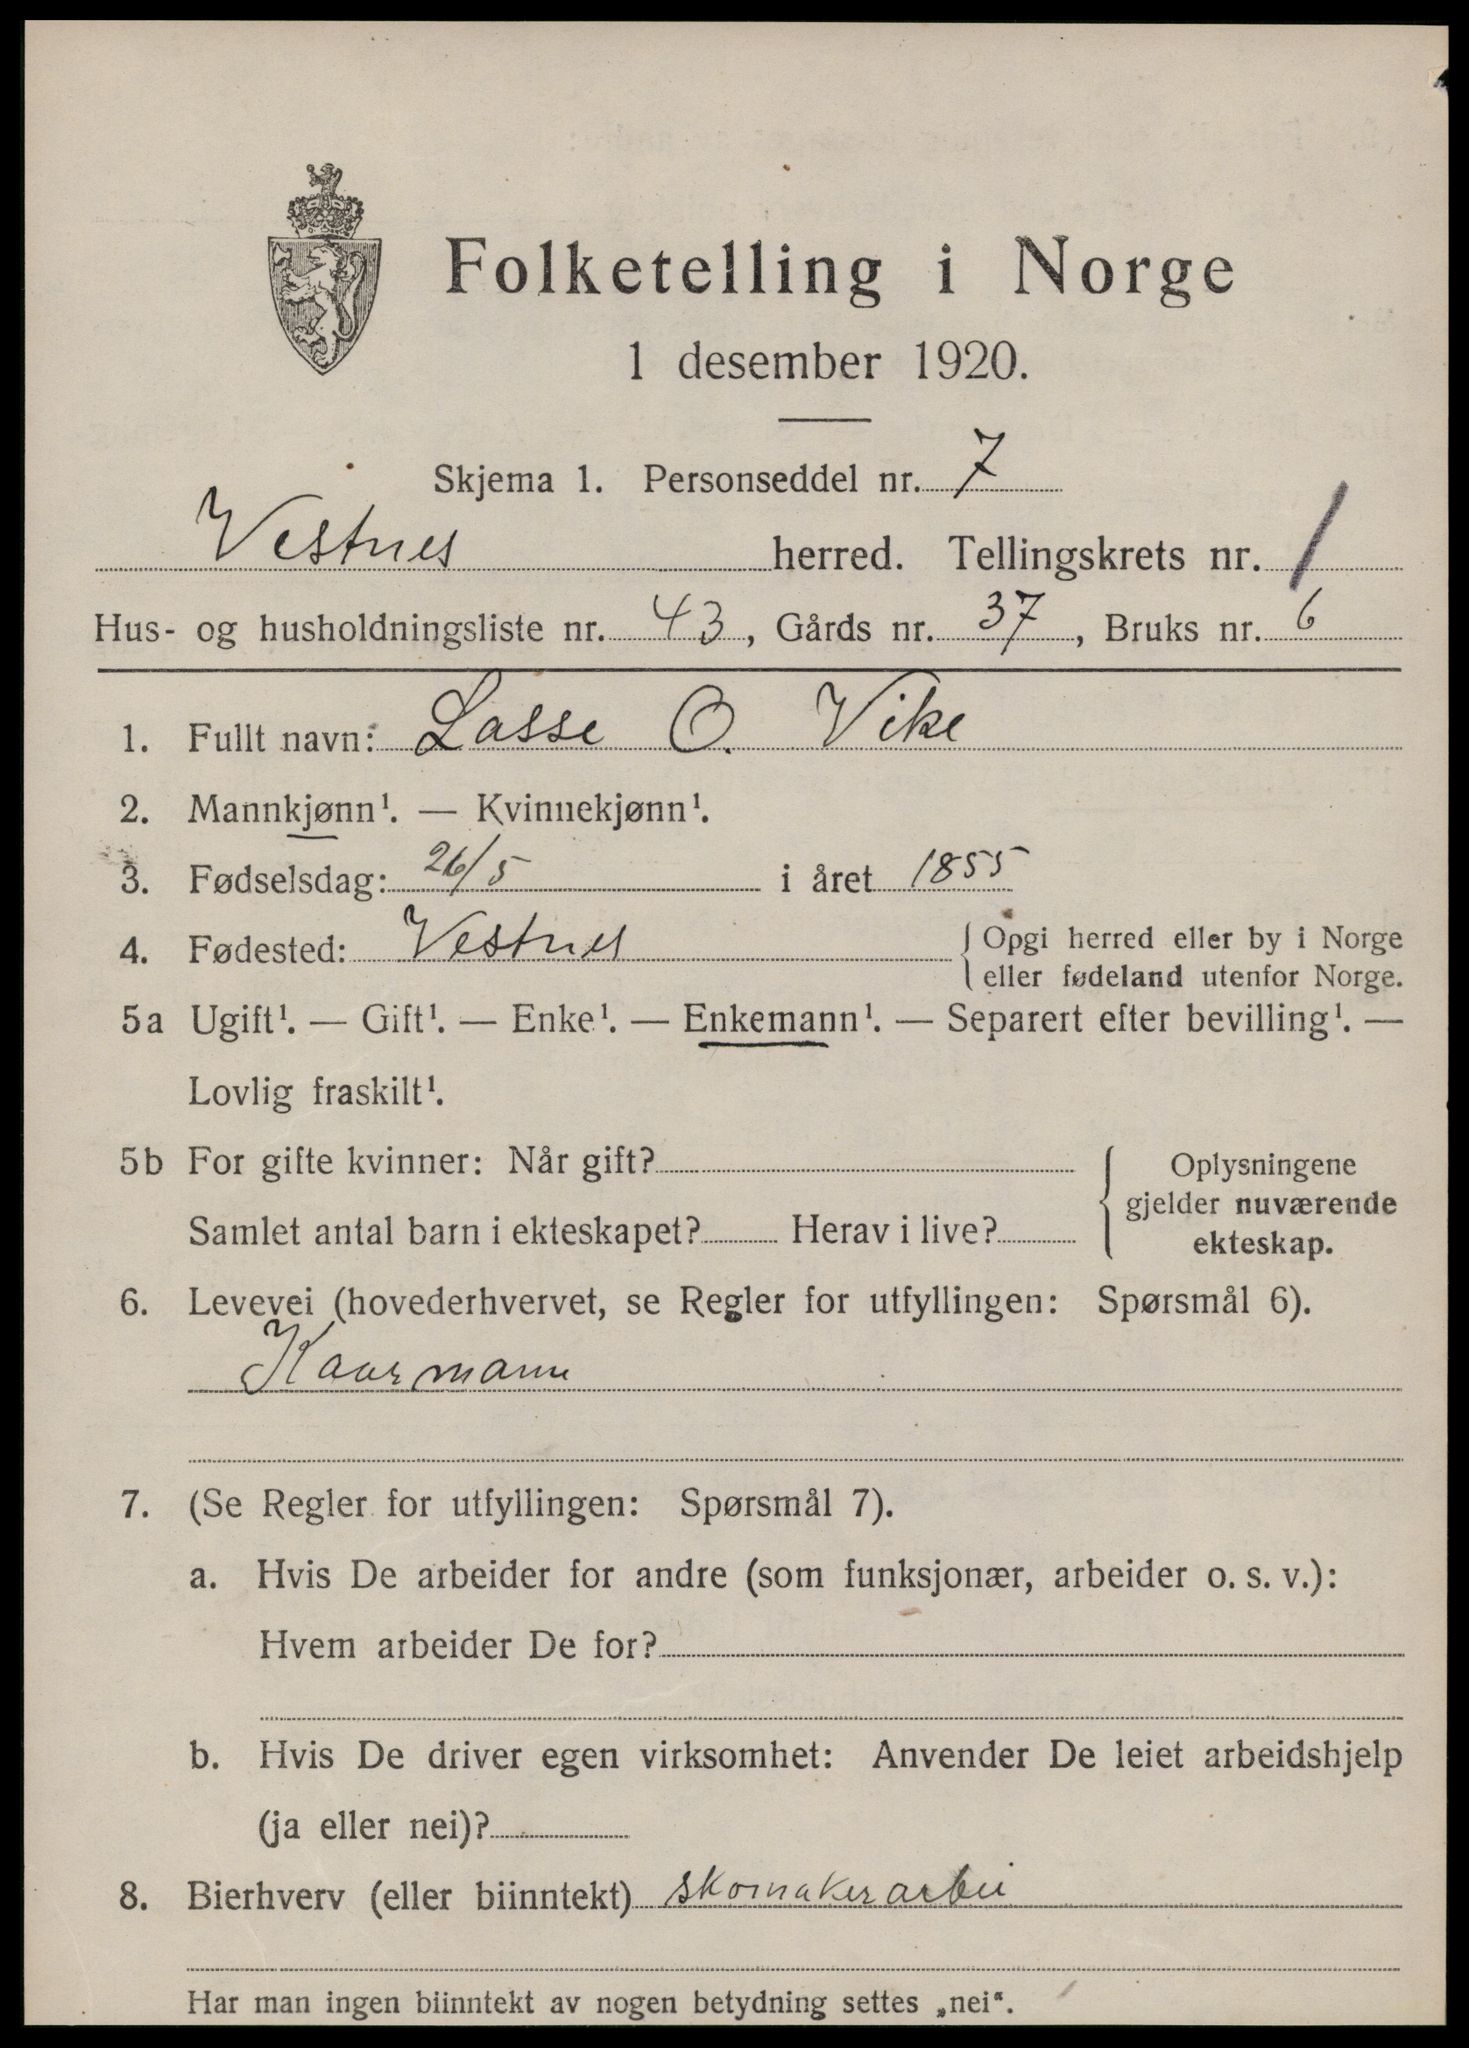 Folketelling i Norge
1 desember 1920.
Skjema 1. Personseddel nr. 7
Vestnes herred. Tellingskrets nr. 1
Hus- og husholdningsliste nr. 43, Gårds nr. 37, Bruks nr. 6
1. Fullt navn: Lasse O. Vike
2. Mannkjønn¹. — Kvinnekjønn¹.
3. Fødselsdag: 26/5 i året 1855
4. Fødested: Vestnes { Opgi herred eller by i Norge
eller fødeland utenfor Norge.
5a Ugift¹. — Gift¹. — Enke¹. — Enkemann¹. — Separert efter bevilling¹. —
Lovlig fraskilt¹.
5b For gifte kvinner: Når gift?
Samlet antal barn i ekteskapet? Herav i live?
Oplysningene
gjelder nuværende
ekteskap.
6. Levevei (hovederhvervet, se Regler for utfyllingen: Spørsmål 6).
Kaarmann
7. (Se Regler for utfyllingen: Spørsmål 7).
a. Hvis De arbeider for andre (som funksjonær, arbeider o. s. v.):
Hvem arbeider De for?
b. Hvis De driver egen virksomhet: Anvender De leiet arbeidshjelp
(ja eller nei)?
8. Bierhverv (eller biinntekt) skomakerarbei
Har man ingen biinntekt av nogen betydning settes „nei“.